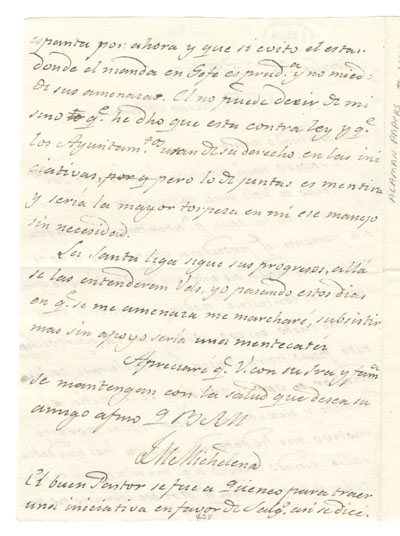 espanta por ahora y que si evito el estar
donde el manda en Gefe es prud.ª y no miedo
de sus amenazas. El no puede decir de mi
sino q.e he dho que esta contra ley y q.e
los Ayuntam.tos usan de su derecho en las ini
ciativas, pero lo de juntas es mentira
y seria la mayor torpeza en mi ese manejo
sin necesidad.
La Santa liga sigue sus progresos, allá
se las entenderan Vds. yo pasando estos dias
en q.e se me amenaza me marcharé, subsistir
mas sin apoyo seria una mentecatez
Apreciaré q.e V. con su Sra y fam.a
se mantengan con la salud que desea su
amigo afmo Q B S M
JM Michelena
El buen Pastor se fue a para traer
una iniciativa en favor de asi se dice.
ALAMAN PAPERS